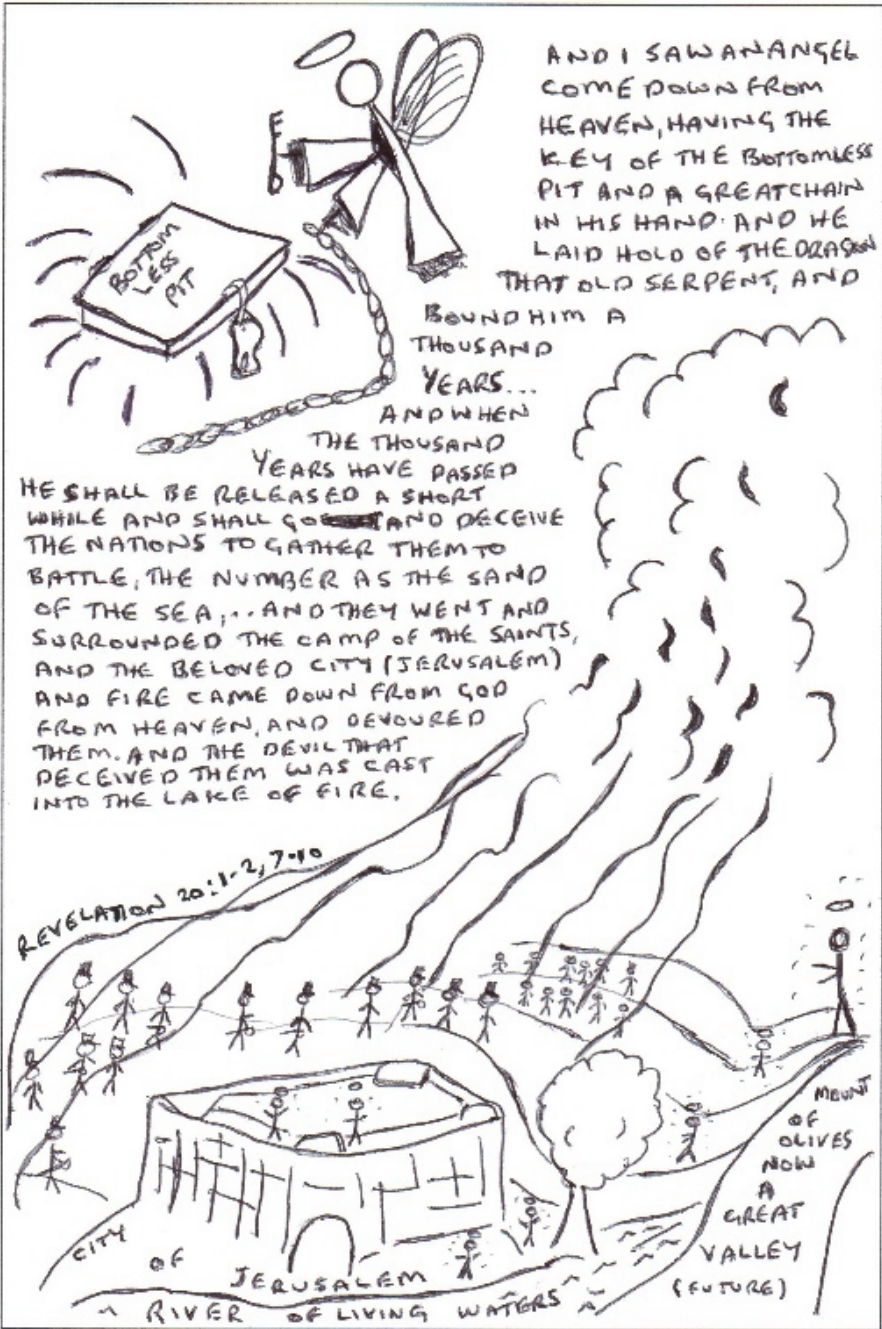 AND I SAW AN ANGEL
COME DOWN FROM
HEAVEN, HAVING THE
KEY OF THE BOTTOMLESS
PIT AND A GREAT CHAIN
IN HIS HAND. AND HE
LAID HOLD OF THE DRAGON
THAT OLD SERPENT, AND
BOUND HIM A
THOUSAND
YEARS...
AND WHEN
THE THOUSAND
YEARS HAVE PASSED
HE SHALL BE RELEASED A SHORT
WHILE AND SHALL GO AND DECEIVE
THE NATIONS TO GATHER THEM TO
BATTLE, THE NUMBER AS THE SAND
OF THE SEA,... AND THEY WENT AND
SURROUNDED THE CAMP OF THE SAINTS,
AND THE BELOVED CITY (JERUSALEM)
AND FIRE CAME DOWN FROM GOD
FROM HEAVEN, AND DEVOURED
THEM. AND THE DEVIL THAT
DECEIVED THEM WAS CAST
INTO THE LAKE OF FIRE.
REVELATION 20:1-2, 7-10
BOTTOM
LESS
PIT
MOUNT
OF
OLIVES
NOW
A
GREAT
VALLEY
(FUTURE)
CITY
OF
JERUSALEM
RIVER OF LIVING WATERS